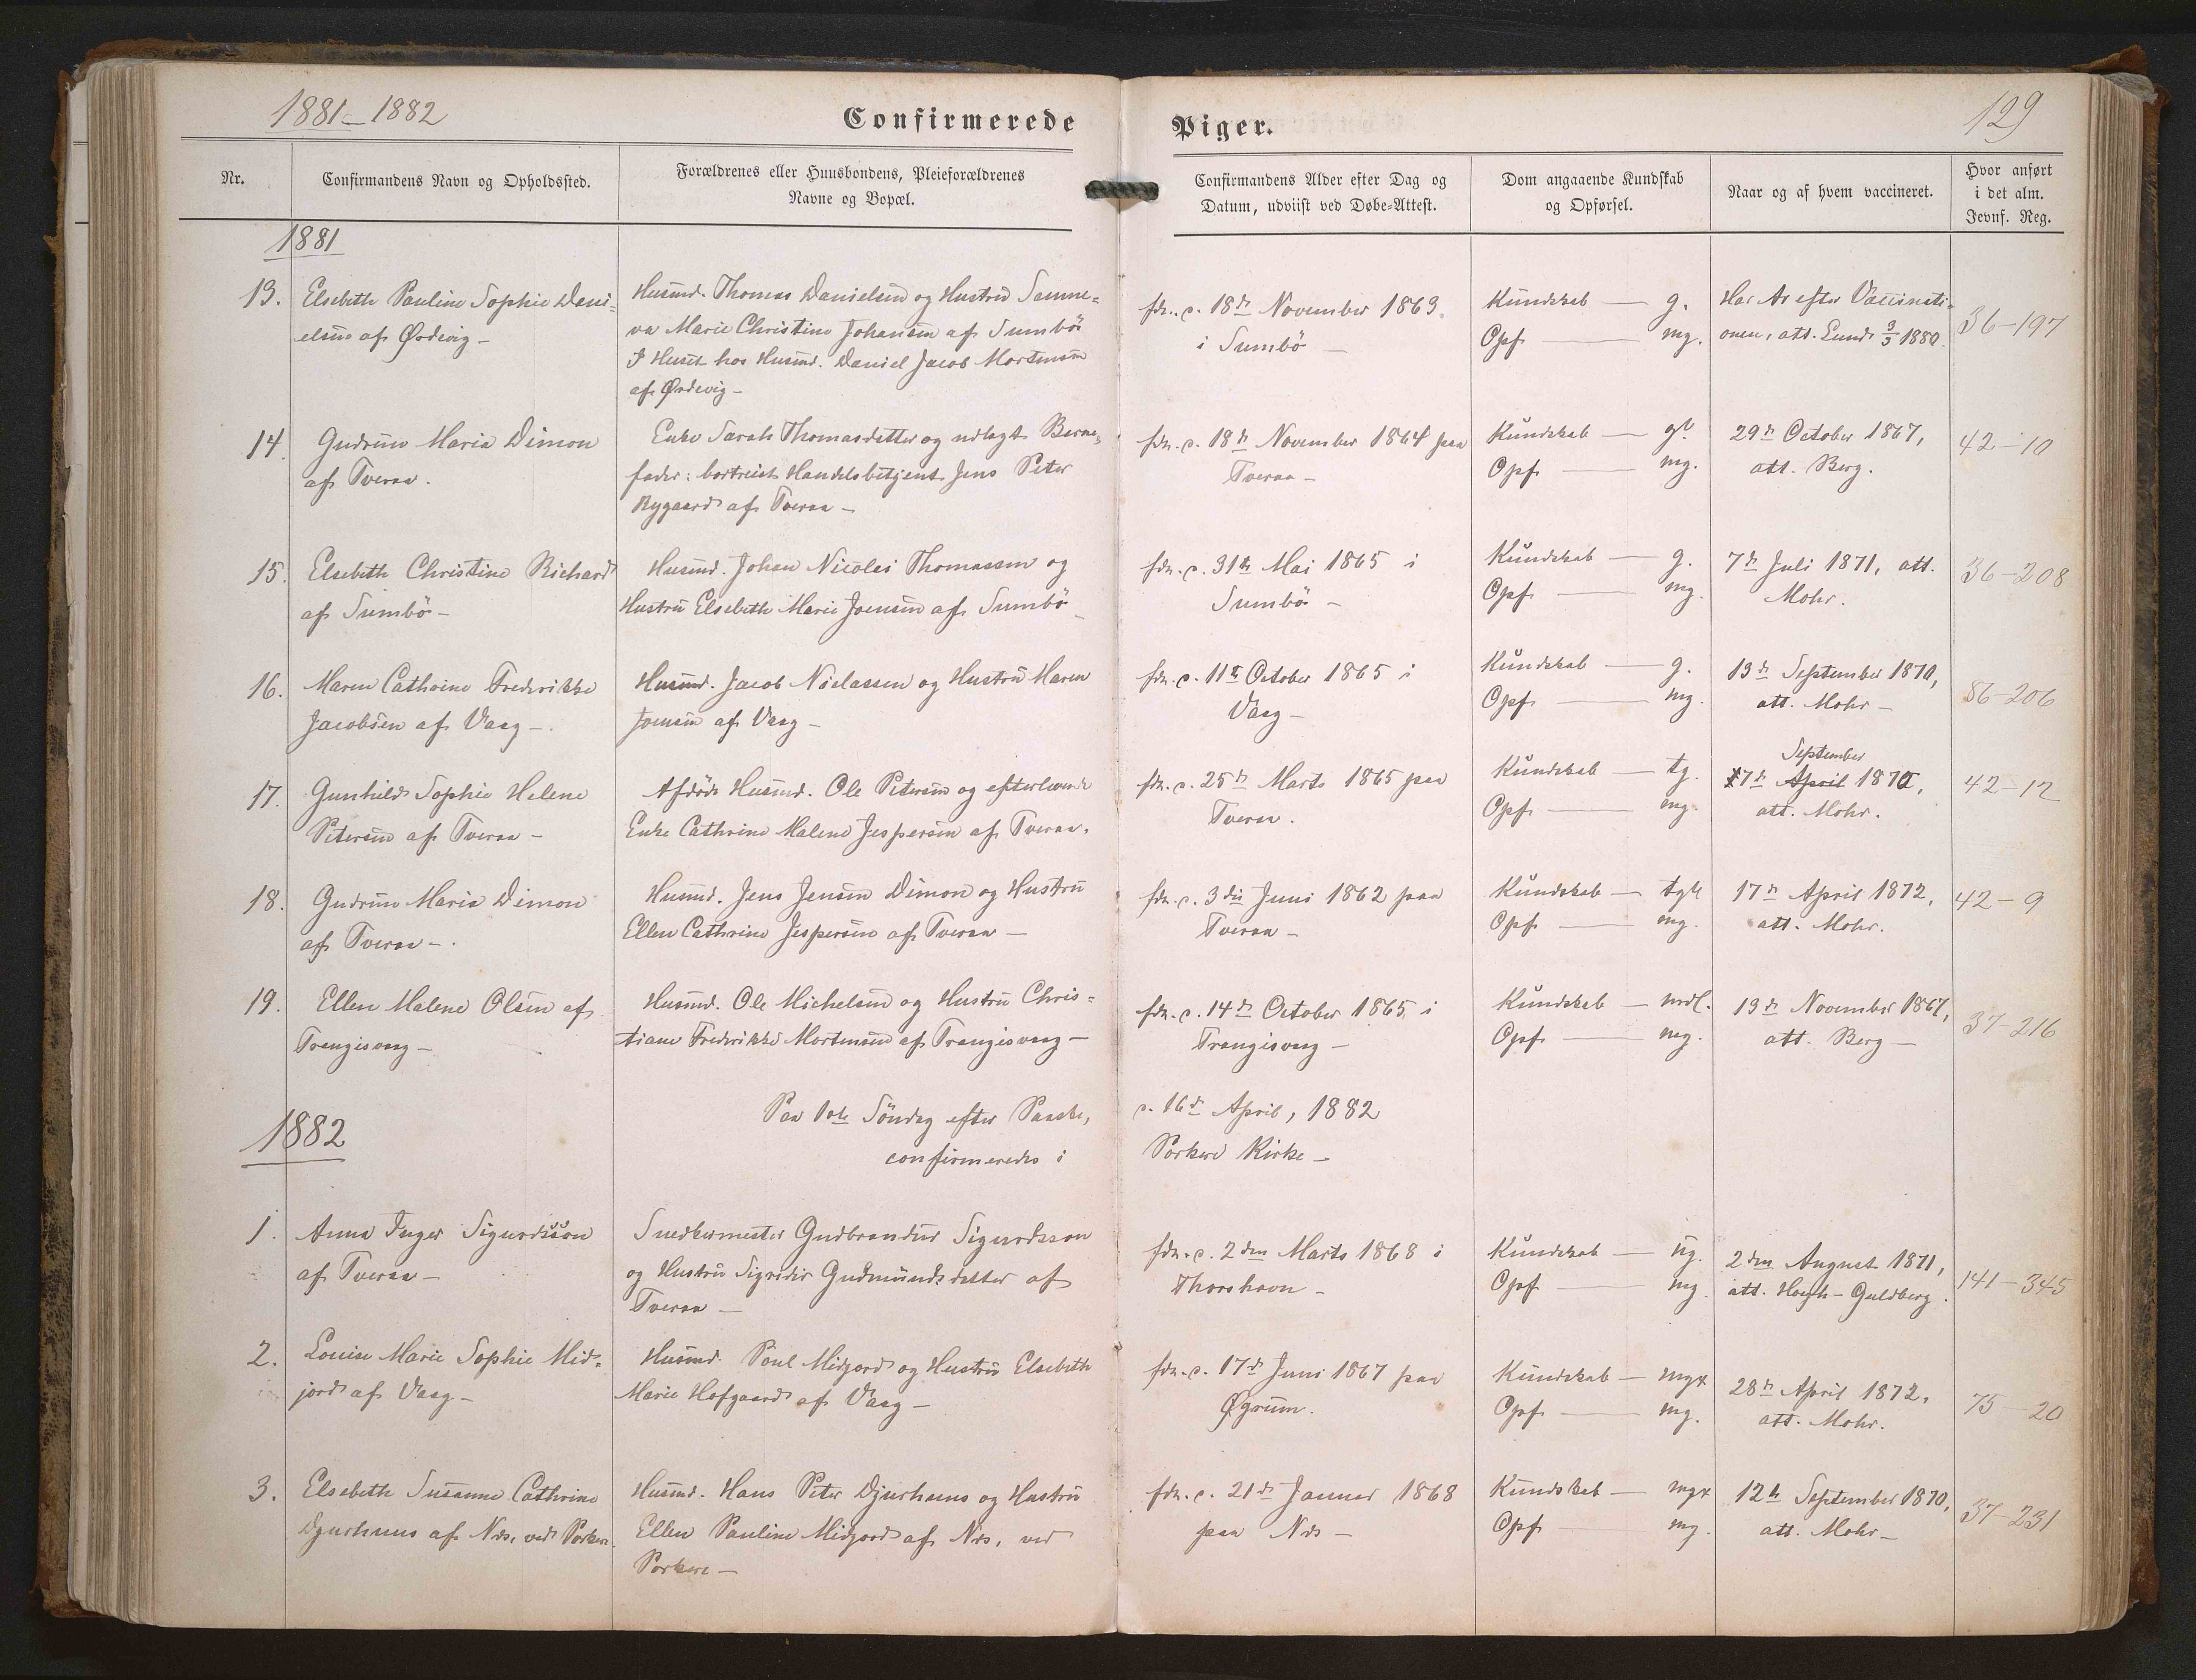 1881 – 1882
Confirmerede Piger.
129
Nr.
Confirmandens Navn og Opholdssted.
Forældrenes eller Huusbondens, Pleieforældrenes
Navne og Bopæl.
Confirmandens Alder efter Dag og
Datum, udviist ved Døbe-Attest.
Dom angaaende Kundskab
og Opførsel.
Naar og af hvem vaccineret.
Hvor anført
i det alm.
Jevnf. Reg.
1881
13.
Elsebeth Pauline Sophie Dani-
elsen af Ørdevig –
Husmd. Thomas Danielsen og Hustru Sanne-
va Marie Christine Johansen af Sumbö
I Huset hos Husmd. Daniel Jacob Mortensen
af Ørdevig –
fdn. d. 18de November 1863.
i Sumbö –
Kundskab — g.
Opf. — mg.
Har Ar efter Vaccinati-
onen, att. Lund 9/3 1880.
36–197
14.
Gudrun Maria Dimon
af Tveraa.
Enke Sarah Thomasdatter og udlagt Barne-
fader: bortreist Handelsbetjent Jens Peter
Rygaard af Tveraa –
fdn. d. 18de November 1864 paa
Tveraa –
Kundskab — gt.
Opf. — mg.
29de October 1867,
att. Berg.
42–10
15.
Elsebeth Christine Richard
af Sumbö –
Husmd. Johan Nicolai Thomassen og
Hustru Elsebeth Marie Joensen af Sumbö –
fdn. d. 31te Mai 1865 i
Sumbö –
Kundskab — g.
Opf. — mg.
7de Juli 1871, att.
Mohr.
36–208
16.
Maren Cathrine Frederikke
Jacobsen af Vaag –.
Husmd. Jacob Niclassen og Hustru Maren
Joensen af Vaag –
fdn. d. 11te October 1865 i
Vaag –
Kundskab — g.
Opf. — mg.
13de September 1870,
att. Mohr –
86–206
17.
Gunhild Sophie Helene
Petersen af Tveraa –
Afdöde Husmd. Ole Petersen og efterlevende
Enke Cathrine Malene Jespersen af Tveraa.
fdn. d. 25de Marts 1865 paa
Tveraa.
Kundskab — tg.
Opf. — mg.
September
17de April 1870,
att. Mohr.
42–12
18.
Gudrun Maria Dimon
af Tveraa –.
Husmd. Jens Jensen Dimon og Hustru
Ellen Cathrine Jespersen af Tveraa –
fdn. d. 3die Juni 1862 paa
Tveraa –
Kundskab — tgt
Opf. — mg.
17de April 1872,
att. Mohr.
42–9
19.
Ellen Malene Olsen af
Trangisvaag –
Husmd. Ole Michelsen og Hustru Chris-
tiane Frederikke Mortensen af Trangisvaag –
fdn. d. 14de October 1865 i
Trangisvaag –
Kundskab — mdl.
Opf. — mg.
13de November 1867,
att. Berg –
37–216
1882
Paa 1ste Söndag efter Paaske, d. 16de April, 1882
confirmeredes i Porkere Kirke –
1.
Anna Inger Sigurdsson
af Tveraa –
Snedkermester Gudbrandur Sigurdsson
og Hustru Sigridir Gudmundsdatter af
Tveraa –
fdn. d. 2den Marts 1868 i
Thorshavn –
Kundskab — ug.
Opf. — mg.
2den August 1871,
att. Høegh-Guldberg.
141–345
2.
Louise Marie Sophie Mid-
jord af Vaag –
Husmd. Poul Midjord og Hustru Elsebeth
Marie Hofgaard af Vaag –
fdn. d. 17de Juni 1867 paa
Øgrum.
Kundskab — mgx
Opf. — mg.
28de April 1872,
att. Mohr.
75–20
3.
Elsebeth Susanne Cathrine
Djurhuus af Næs, ved Porkere.
Husmd. Hans Peter Djurhuus og Hustru
Ellen Pauline Midjord af Næs, ved
Porkere –
fdn. d. 21de Januar 1868
paa Næs –
Kundskab — mgx
Opf. — mg.
12te September 1870,
att. Mohr –
37–231